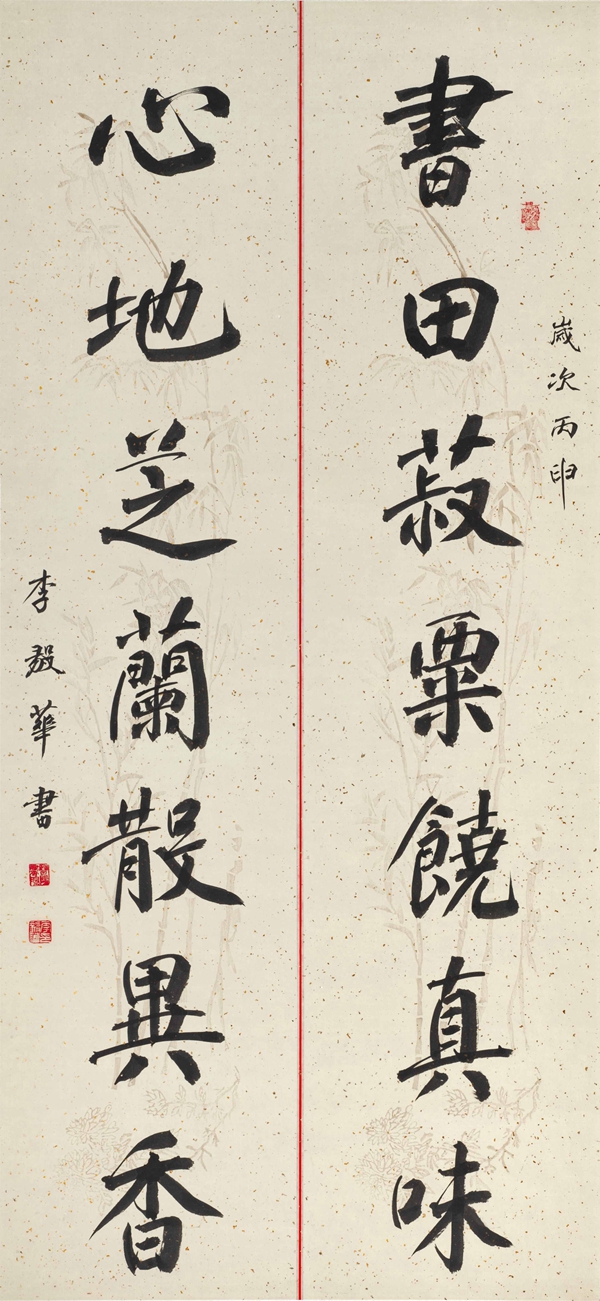 歲次丙申
書田菽粟饒真味
心地芝蘭散異香
李毅華書